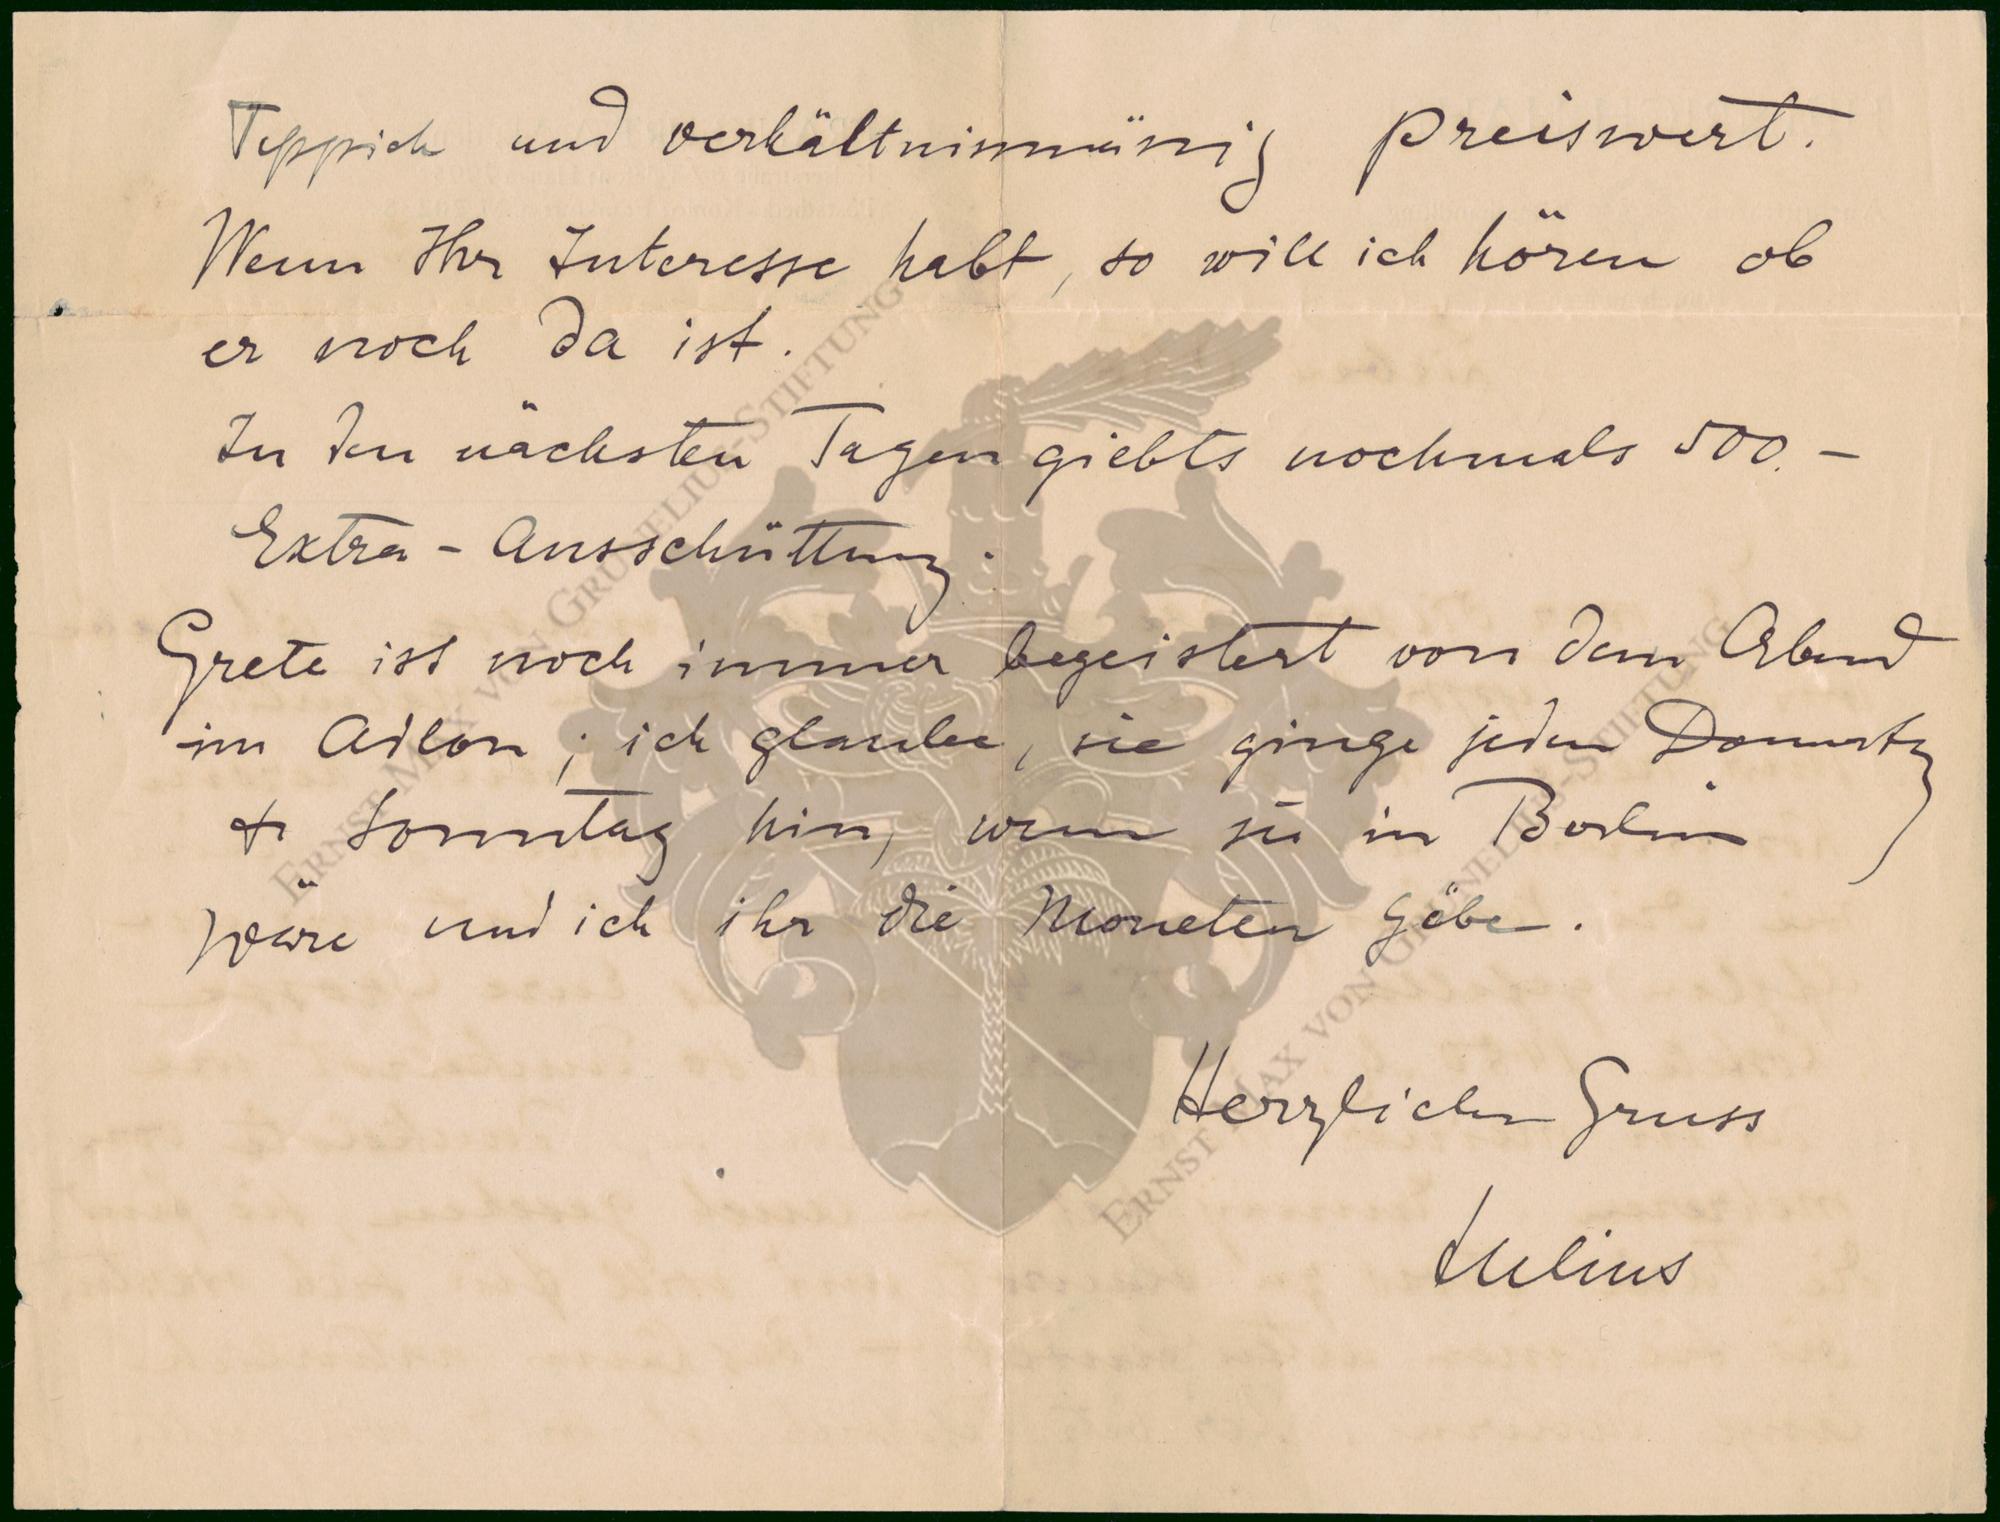 Teppich und verhältnismässig preiswert.
Wenn Ihr Interesse habt, so will ich hören ob
er noch da ist.
In den nächsten Tagen giebts nochmals 500.–
Extra-Ausschüttung.
Grete ist noch immer begeistert von dem Abend
im Adlon; ich glaube, sie ginge jeden Donnerstg
& Sonntag hin, wenn sie in Berlin
wäre und ich ihr die Moneten gäbe.
Herzlichen Gruss
Julius
ERNST MAX VON GRUNELIUS-STIFTUNG
ERNST MAX VON GRUNELIUS-STIFTUNG